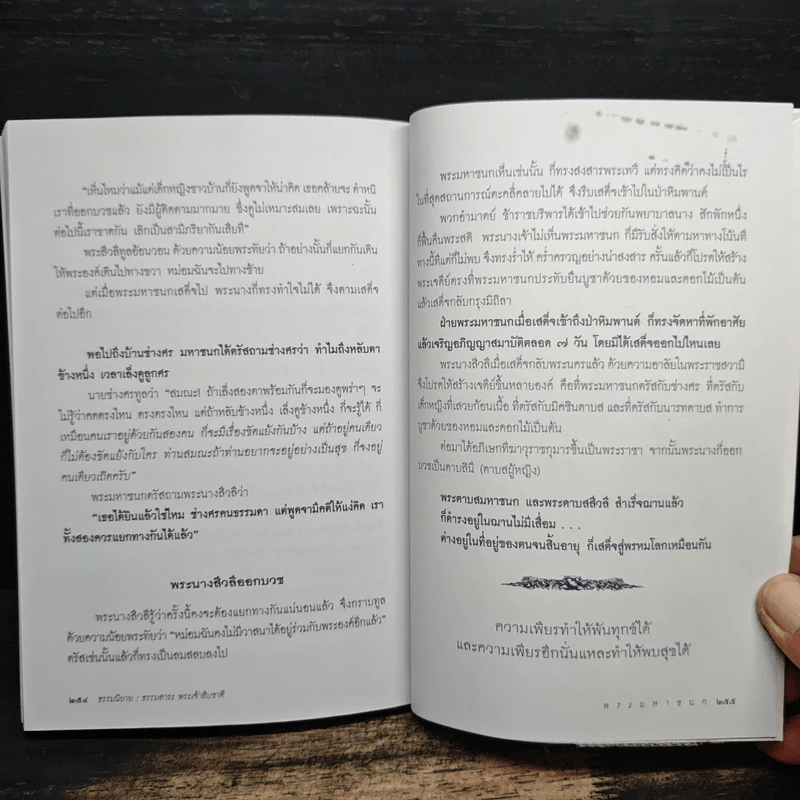 “เห็นไหมว่าแม้แต่เด็กหญิงชาวบ้านก็ยังพูดจาให้น่าคิด เธอคล้ายจะ ตำหนิ
เราที่ออกบวชแล้ว ยังมีผู้ติดตามมากมาย ซึ่งดูไม่เหมาะสมเลย เพราะฉะนั้น
ต่อไปนี้เราขาดกัน เลิกเป็นสามีภริยากันเสียที”
พระสีวลีทูลอ้อนวอน ด้วยความน้อยพระทัยว่า ถ้าอย่างนั้นก็แยกกันเดิน
ให้พระองค์เดินไปทางขวา หม่อมฉันจะไปทางซ้าย
แต่เมื่อพระมหาชนกเสด็จไป พระนางก็ทรงทำใจไม่ได้ จึงตามเสด็จ
ต่อไปอีก
พอไปถึงบ้านช่างศร มหาชนกได้ตรัสถามช่างศรว่า ทำไมถึงหลับตา
ข้างหนึ่ง เวลาเล็งดูลูกศร
นายช่างศรทูลว่า “สมณะ! ถ้าเล็งสองตาพร้อมกันก็จะมองดูพร่าๆ จะ
ไม่รู้ว่าคดตรงไหน ตรงตรงไหน แต่ถ้าหลับข้างหนึ่ง เล็งดูข้างหนึ่ง ก็จะรู้ได้ ก็
เหมือนคนเราอยู่ด้วยกันสองคน ก็จะมีเรื่องขัดแย้งกันบ้าง แต่ถ้าอยู่คนเดียว
ก็ไม่ต้องขัดแย้งกับใคร ท่านสมณะถ้าท่านอยากจะอยู่อย่างเป็นสุข ก็จงอยู่
คนเดียวเถิดครับ”
พระมหาชนกตรัสถามพระนางสีวลีว่า
“เธอได้ยินแล้วใช่ไหม ช่างศรคนธรรมดา แต่พูดจามีคติให้แง่คิด เรา
ทั้งสองควรแยกทางกันได้แล้ว”
พระนางสีวลีออกบวช
พระนางสีวลีรู้ว่าครั้งนี้คงจะต้องแยกทางกันแน่นอนแล้ว จึงกราบทูล
ด้วยความน้อยพระทัยว่า “หม่อมฉันคงไม่มีวาสนาได้อยู่ร่วมกับพระองค์อีกแล้ว”
ตรัสเช่นนั้นแล้วก็ทรงเป็นลมสลบลงไป
๒๕๔ ธรรมนิยาย : ธรรมสาระ พระเจ้าสิบชาติ
พระมหาชนกเห็นเช่นนั้น ก็ทรงสงสารพระเทวี แต่ทรงคิดว่าคงไม่เป็นไร
ในที่สุดสถานการณ์จะคลี่คลายไปได้ จึงรีบเสด็จเข้าไปในป่าหิมพานต์
พวกอำมาตย์ ข้าราชบริพารได้เข้าไปช่วยกันพยาบาลนาง สักพักหนึ่ง
ก็ฟื้นคืนพระสติ พระนางเจ้าไม่เห็นพระมหาชนก ก็มีรับสั่งให้ตามหาทางโน้นที
ทางนี้ทีแต่ก็ไม่พบ จึงทรงร่ำไห้ คร่ำครวญอย่างน่าสงสาร ครั้นแล้วก็โปรดให้สร้าง
พระเจดีย์ตรงที่พระมหาชนกประทับยืนบูชาด้วยของหอมและดอกไม้เป็นต้น
แล้วเสด็จกลับกรุงมิถิลา
ฝ่ายพระมหาชนกเมื่อเสด็จเข้าถึงป่าหิมพานต์ ก็ทรงจัดหาที่พักอาศัย
แล้วเจริญอภิญญาสมาบัติตลอด ๗ วัน โดยมิได้เสด็จออกไปไหนเลย
พระนางสีวลีเมื่อเสด็จกลับพระนครแล้ว ด้วยความอาลัยในพระราชสวามี
จึงโปรดให้สร้างเจดีย์ขึ้นหลายองค์ คือที่พระมหาชนกตรัสกับช่างศร ที่ตรัสกับ
เด็กหญิงที่เสวยก้อนเนื้อ ที่ตรัสกับมิคชินดาบส และที่ตรัสกับนารทดาบส ทำการ
บูชาด้วยของหอมและดอกไม้เป็นต้น
ต่อมาได้อภิเษกทีฆาวุราชกุมารขึ้นเป็นพระราชา จากนั้นพระนางก็ออก
บวชเป็นดาบสินี (ดาบสผู้หญิง)
พระดาบสมหาชนก และพระดาบสสีวลี สำเร็จฌานแล้ว
ก็ดำรงอยู่ในฌานไม่มีเสื่อม . . .
ต่างอยู่ในที่อยู่ของตนจนสิ้นอายุ ก็เสด็จสู่พรหมโลกเหมือนกัน
ความเพียรทำให้พ้นทุกข์ได้
และความเพียรอีกนั่นแหละทำให้พบสุขได้
พระมหาชนก ๒๕๕